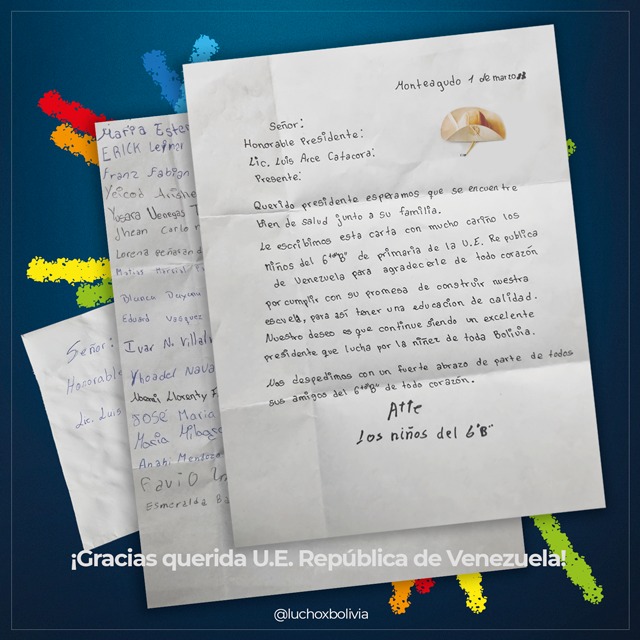 Monteagudo 1 de marzo
Señor:
Honorable Presidente:
Lic. Luis Arce Catacora:
Presente:
Querido presidente esperamos que se encuentre
bien de salud junto a su familia.
Le escribimos esta carta con mucho cariño los
niños del 6to"B" de primaria de la U.E. Republica
de Venezuela para agradecerle de todo corazón
por cumplir con su promesa de construir nuestra
escuela, para así tener una educacion de calidad.
Nuestro deseo es que continue siendo un excelente
presidente que lucha por la niñez de toda Bolivia.
Nos despedimos con un fuerte abrazo de parte de todos
sus amigos del 6to"B" de todo corazón.
Atte
Los niños del 6"B"
Maria Ester
ERICK
Franz Fabian
Yosara Venegas
Jhean Carlo
Lorena
Blanca Dayana
Eduard Vasquez
Ivar N. Villal
Nava
JOSÉ Maria
Maria Milagro
Anahi Mendoza
FaviO
Esmeralda
Señor:
Honorable
Lic. Luis
¡Gracias querida U.E. República de Venezuela!
@luchoxbolivia